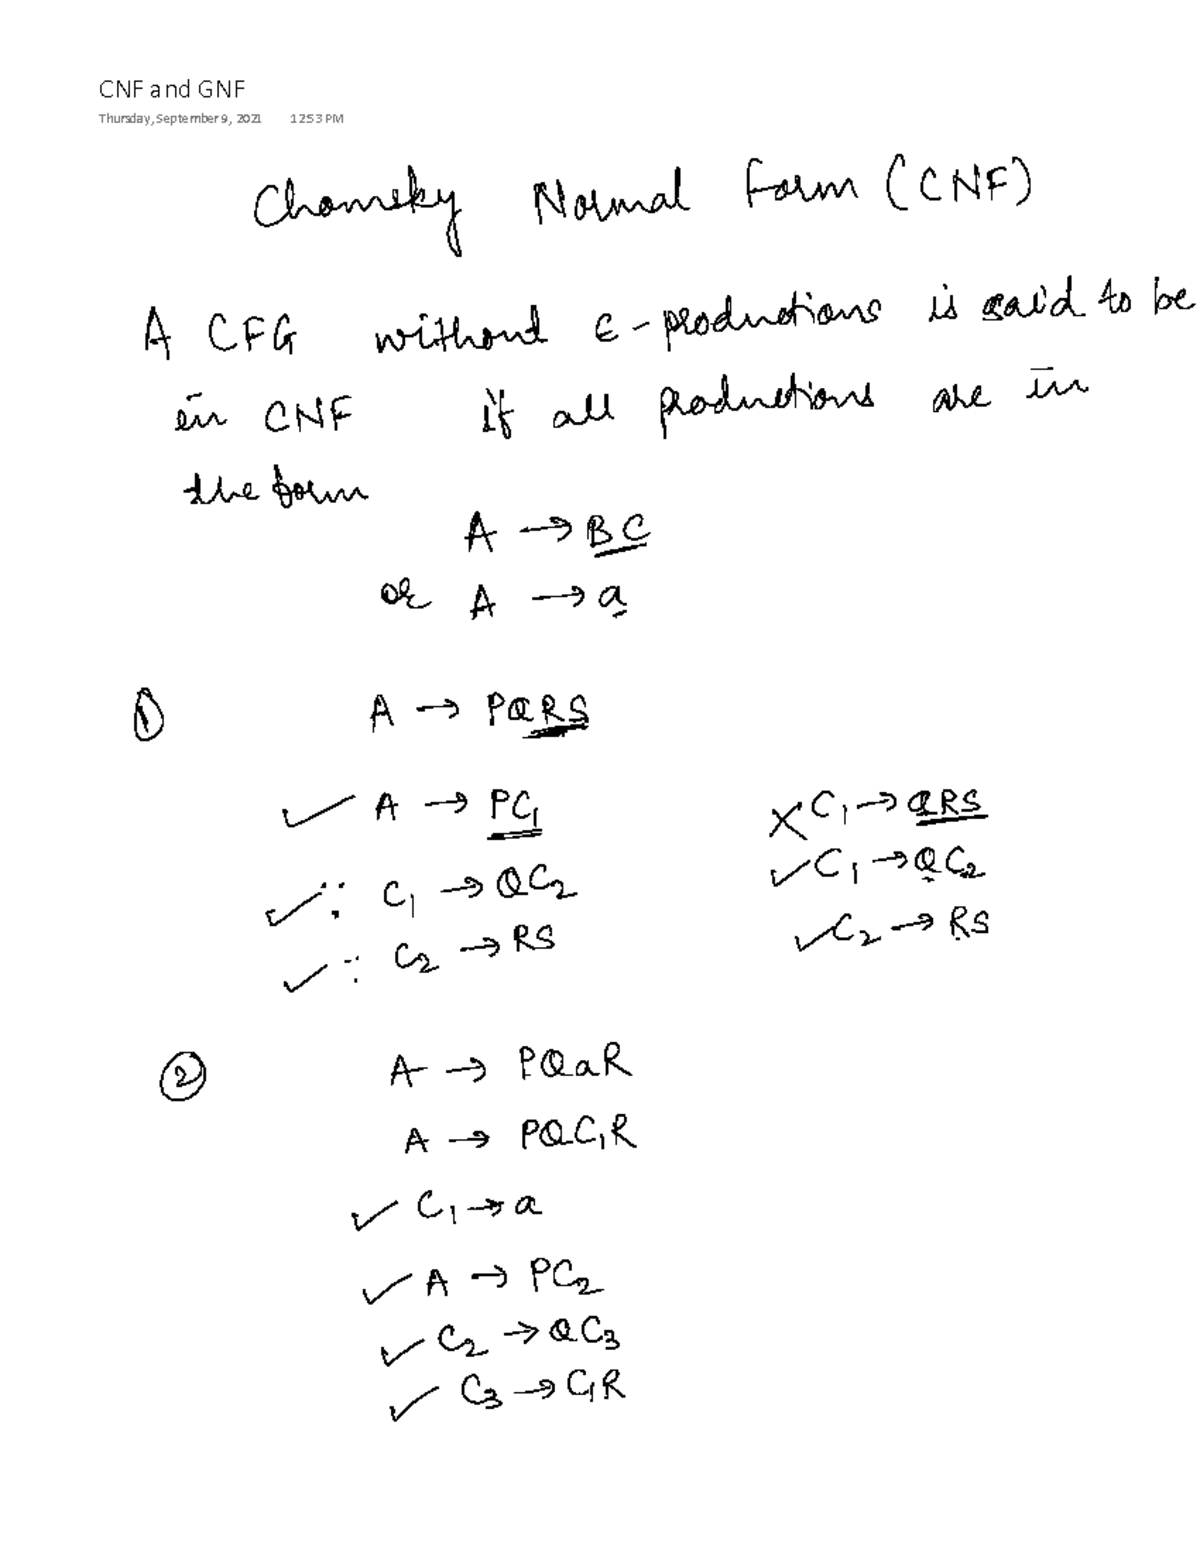 CNF and GNF
Thursday, September 9, 2021 12:53 PM
Chomsky Normal Form (CNF)
A CFG without ε-productions is said to be
in CNF if all productions are in
the form
A → BC
or A → a
① A → PQRS
✓ A → PC₁ ✗ C₁ → QRS
✓ ∵ C₁ → QC₂ ✓ C₁ → QC₂
✓ ∵ C₂ → RS ✓ C₂ → RS
② A → PQaR
A → PQC₁R
✓ C₁ → a
✓ A → PC₂
✓ C₂ → QC₃
✓ C₃ → C₁R